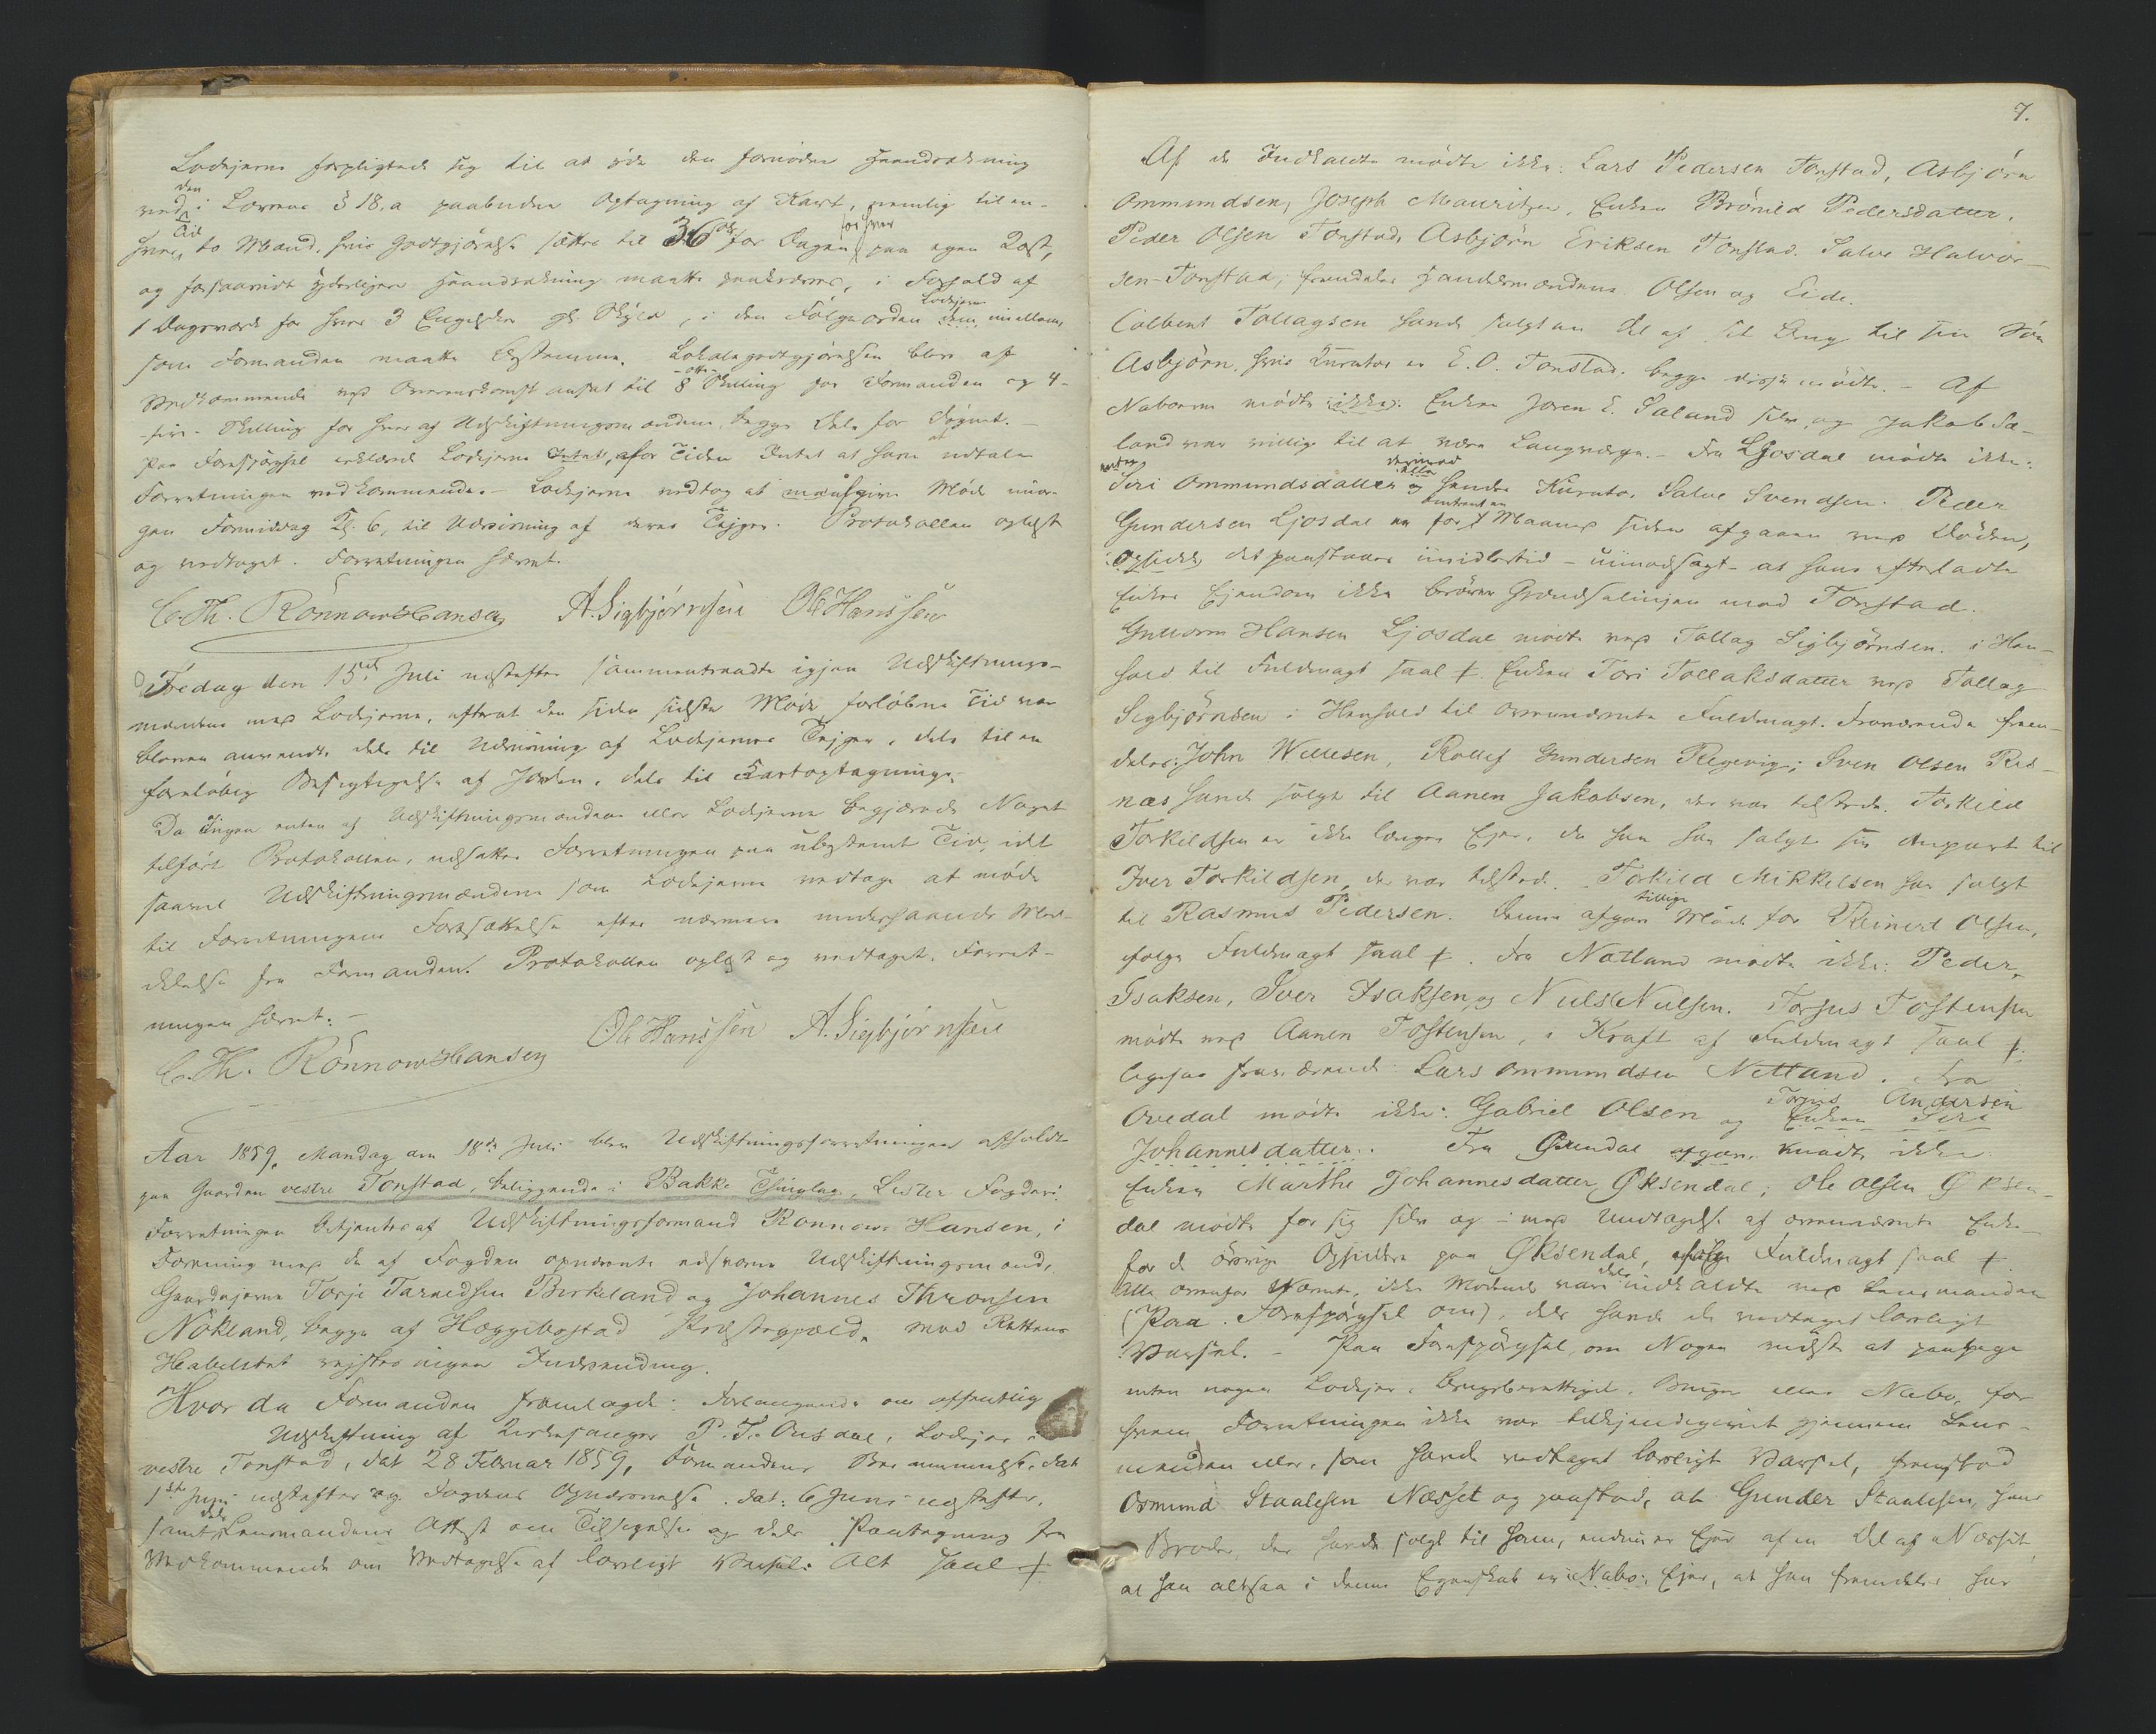 Lodejerne forpligtede sig til at yde den fornødne Haandrækning
den
ved i Lovens § 18, a paabudne Optagning af Kart, nemlig til en-
Tid for hver
hver to Mand, hvis Godtgjørelse sættes til 36 sk for Dagen paa egen Kost,
og forsaavidt yderligere Haandrækning maatte paakræves, i Forhold af
Lodejerne
1 Dagsværk for hver 3 Engelsker gl. Skyld, i den Følgeorden dem imellem,
som Formanden maatte bestemme. Lokalegodtgjørelsen blev af
- otte -
Vedkommende ved Overenskomst ansat til 8 Skilling for Formanden og 4-
-fire- Skilling for hver af Udskiftningsmændene, begge Dele for Døgnet. -
at
Paa Forespørgsel erklærede Lodejerne Intet, for Tiden Intet at have udtale
Forretningen vedkommende. - Lodejerne vedtog at give Møde mor-
gen Formiddag Kl. 6, til Udvisning af deres Tejger. Protokollen oplæst
og vedtaget. Forretningen hævet.
C. Th. Rönnow Hansen A. Sigbjørnsen Ole Hanssen
Fredag den 15de Juli næstefter sammentraadte igjen Udskiftnings-
mændene med Lodejerne, efterat den siden sidste Møde forløbne Tid var
bleven anvendt dels til Udvisning af Lodejernes Tejger, dels til en
foreløbig Besigtigelse af Jorden, dels til Kartoptagning.
Da Ingen enten af Udskiftningsmændene eller Lodejerne begjærede Noget
tilført Protokollen, udsattes Forretningen paa ubestemt Tid, idet
saavel Udskiftningsmændene som Lodejerne vedtage at møde
til Forretningens Fortsættelse efter nærmere underhaands Med-
delelse fra Formanden. Protokollen oplæst og vedtaget. Forret-
ningen hævet. -
C. Th. Rönnow Hansen Ole Hanssen A. Sigbjørnsen
Aar 1859, Mandag den 18de Juli blev Udskiftningsforretningen afholdt
paa Gaarden vestre Tonstad, beliggende i Bakke Thinglag, Lister Fogderi.
Forretningen betjentes af Udskiftningsformand Rönnow Hansen, i
Forening med de af Fogden opnævnte edsvorne Udskiftningsmænd,
Gaardejerne Torje Tarvedsen Birkeland og Johannes Thronsen
Nökland, begge af Hæggebostad Præstegjæld. Mod Rettens
Habilitet rejstes ingen Indvending.
Hvor da Formanden fremlagde: Forlangende om offentlig
Udskiftning af Kirkesanger P. T. Ousdal, Lodejer i
vestre Tonstad, dat. 28 Februar 1859, Formandens Berammelse, dat.
1ste Juni næstefter og Fogdens Opnævnelse, dat. 6 Juni næstefter,
dels
samt Lensmandens Attest om Tilsigelse og dels Paategning fra
Vedkommende om Vedtagelse af lovligt Varsel: Alt saal. ‡
7.
Af de Indkaldte mødte ikke: Lars Pedersen Tonstad, Asbjörn
Ommundsen, Joseph Mauritzen, Enken Brönild Pedersdatter,
Peder Olsen Tonstad, Asbjörn Eriksen Tonstad, Salve Halvor-
sen Tonstad; fremdeles Handelsmændene Olsen og Eide.
Colbent Tollagsen havde solgt en Del af sit Brug til sin Søn
Asbjörn, hvis Kurator er E. O. Tonstad. begge disse mødte. - Af
Naboerne mødte ikke: Enken Joren E. Saland selv, og Jakob Sa-
land var villig til at være Laugværge. - Fra Ljosdal mødte ikke:
enten derimod eller
Siri Ommundsdatter og hendes Kurator Salve Svendsen. Peder
Gundersen Ljosdal er for Maaneder siden afgaaen ved Døden,
Opsidd. det paastaaes imidlertid - uimodsagt - at hans efterladte
Enkes Ejendom ikke berører Grændselinjen mod Tonstad.
Guttorm Hansen Ljosdal mødte ved Tollag Sigbjörnsen i Hen-
hold til Fuldmagt saal ‡. Enken Tori Tollaksdatter ved Tollag
Sigbjörnsen i Henhold til ovennævnte Fuldmagt. Fraværende frem-
deles: John Willesen, Rollef Gundersen Regevig; Sven Olsen Res-
næs havde solgt til Aanen Jakobsen, der var tilstede. Torkild
Torkildsen er ikke længere Ejer, da han har solgt sin Anpart til
Iver Torkildsen, der var tilstede. Torkild Mikkelsen har solgt
tillige
til Rasmus Pedersen. Denne afgav Møde for Reinert Olsen,
ifølge Fuldmagt saal ‡. Fra Netland mødte ikke: Peder
Isaksen, Iver Isaksen, og Niels Nielsen. Torjus Tostensen
mødte ved Aanen Tostensen, i Kraft af Fuldmagt saal ‡.
ligesaa fraværende: Lars Ommundsen Netland. Fra
Torjus Andersen
Ovedal mødte ikke: Gabriel Olsen og Enken Siri
Johannesdatter. Fra Øksendal afgav mødte ikke
Enken Marthe Johannesdatter Øksendal; Ole Olsen Øksen-
dal mødte for sig selv og - med Undtagelse af ovennævnte Enke
for de øvrige Opsiddere paa Øksendal, ifølge Fuldmagt saal ‡
dels
Alle ovenfor Nævnte, ikke Mødende vare indkaldte ved Lensmanden
(Paa Forespørgsel om), dels havde de vedtaget lovligt
Varsel. - Paa Forespørgsel, om Nogen vidste at paapege
enten nogen Lodejer, brugsberettiget, Bruger eller Nabo, for
hvem Forretningen ikke var tilkjendegivet gjennem Lens-
manden eller, som havde vedtaget lovligt Varsel, fremstod
Osmund Staalesen Næsset og paastod, at Gunder Staalesen, hans
Broder, der havde solgt til ham, endnu er Ejer af en Del af Næsset,
at han altsaa i denne Egenskab er Nabo-Ejer, at han fremdeles har